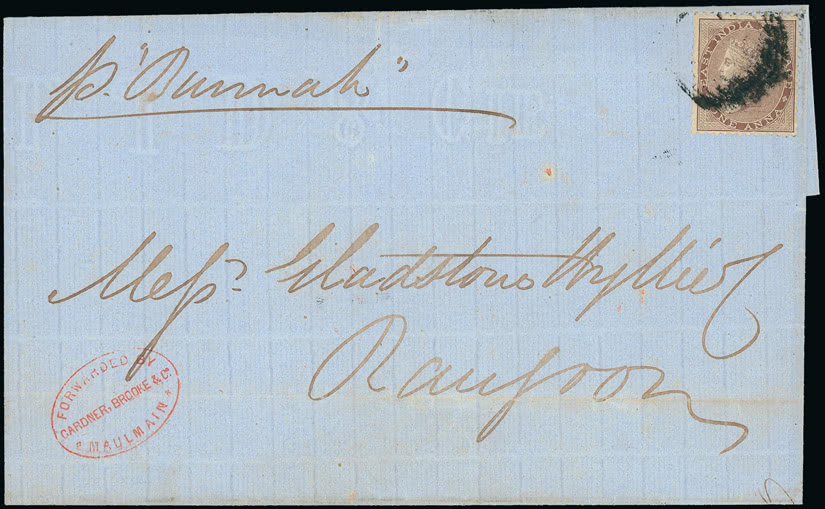 p. "Burmah"
EAST INDIA
ONE ANNA
Messrs Gladstone Wyllie &
Rangoon
FORWARDED BY
GARDNER, BROOKE & Co.
MAULMAIN